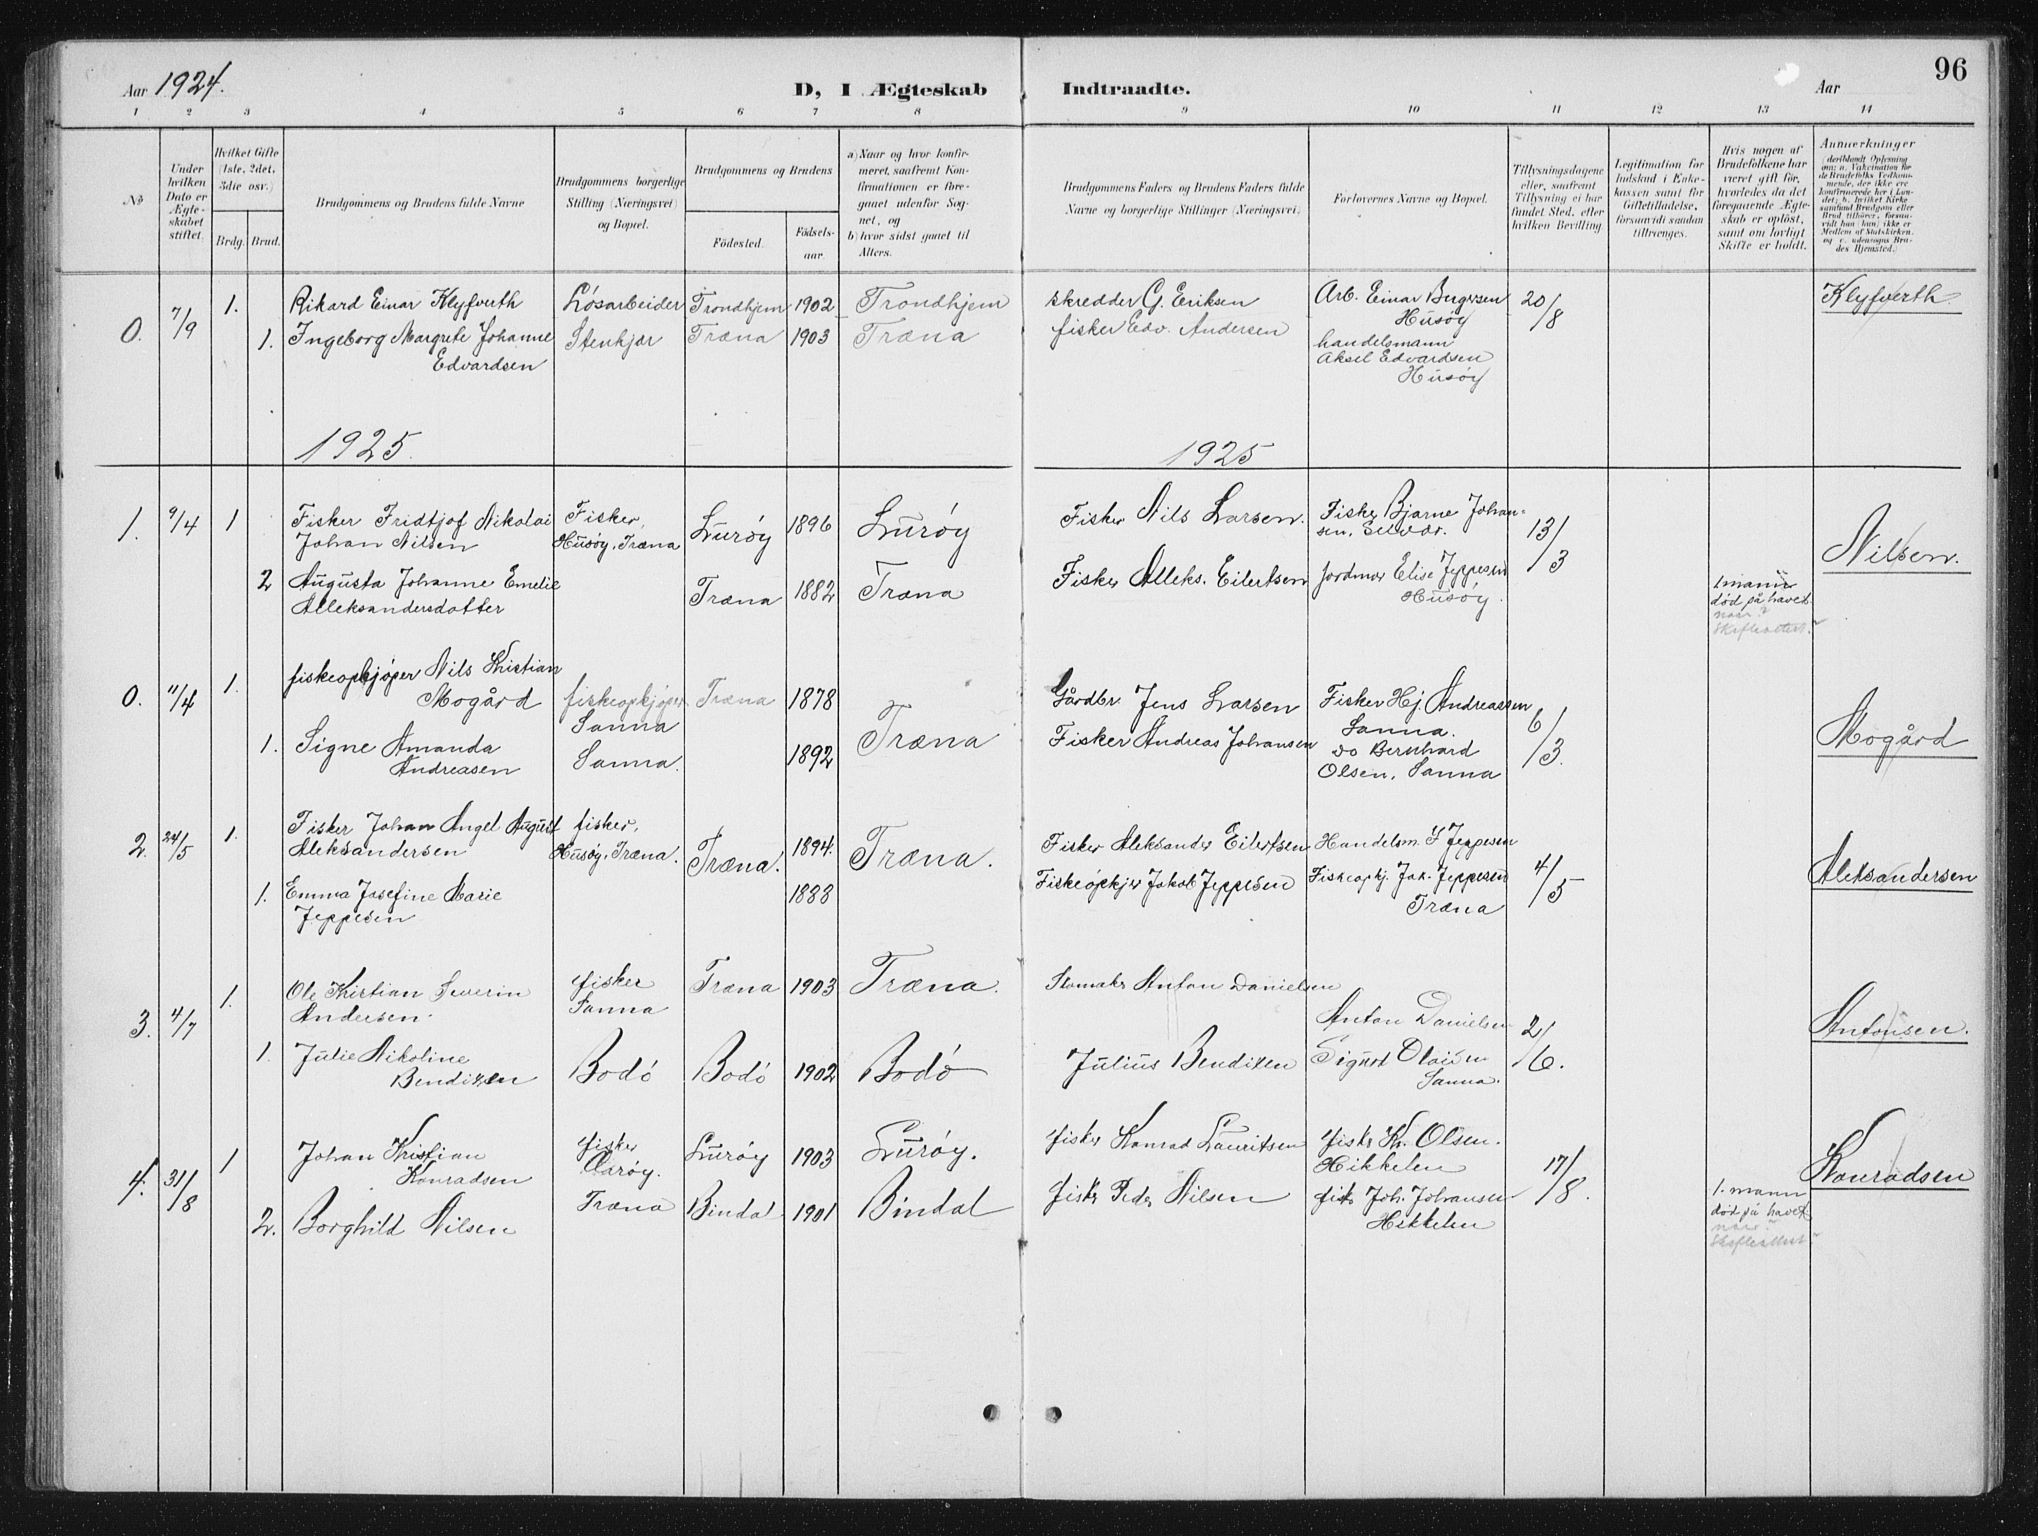 96
Aar 1924.
D, I Ægteskab Indtraadte.
Aar
1 2 3 4 5 6 7 8 9 10 11 12 13 14
No
Under hvilken Dato er Ægteskabet stiftet.
Hvilket Gifte (1ste, 2det, 3die osv.)
Brdg. Brud.
Brudgommens og Brudens fulde Navne
Brudgommens borgerlige Stilling (Næringsvei) og Bopæl.
Brudgommens og Brudens
Födested. Födselsaar.
a) Naar og hvor konfirmeret, saafremt Konfirmationen er foregaaet udenfor Sognet, og
b) hvor sidst gaaet til Alters.
Brudgommens Faders og Brudens Faders fulde Navne og borgerlige Stillinger (Næringsvei).
Forlovernes Navne og Bopæl.
Tillysningsdagene eller, saafremt Tillysning ei har fundet Sted, efter hvilken Bevilling.
Legitimation for Indskud i Enkekassen samt for Giftetilladelse, forsaavidt saadan tiltrænges.
Hvis nogen af Brudefolkene har været gift för, hvorledes da det foregaaende Ægteskab er oplöst, samt om lovligt Skifte er holdt.
Anmerkninger
0. 7/9 1. Rikard Einar Klyfverth Løsarbeider Trondhjem 1902 Trondhjem skredder G. Eriksen Arb. Einar Birgersen Husøy 20/8 Klyfverth
1. Ingeborg Margrete Johanne Edvardsen Stenkjær Træna 1903 Træna fisker Edv. Andersen handelsmann Aksel Edvardsen Husøy
1925. 1925
1. 9/4 1 Fisker Fridtjof Nikolai Johan Nilsen Fisker, Husøy, Træna Lurøy 1896 Lurøy Fisker Nils Larsen. Fisker Bjarne Johansen, Selvær. 13/3 Nilsen.
2 Augusta Johanne Emelie Alleksandersdotter Træna 1882 Træna Fisker Alleks. Eilertsen Jordmor Elise Jeppesen Husøy. 1 mann død på havet. naar?
0. 11/4 1. fiskeopkjøper Nils Kristian Mogård fiskeopkjøper Sanna Træna 1878 Træna Gårdbr. Jens Larsen Fisker Hj. Andreassen Sanna. 6/3. Mogård
1. Signe Amanda Andreasen Sanna. 1892 Fisker Andreas Johansen do Bernhard Olsen, Sanna
2. 24/5 1. Fisker Johan Angel August Aleksandersen fisker, Husøy, Træna. Træna. 1894. Træna. Fisker Aleksander Eilertsen Handelsm. Jeppesen 4/5 Aleksandersen
1. Emma Josefine Marie Jeppesen 1888 Fiskeopkjø Jakob Jeppesen Fiskeopkj. Joh. Jeppesen Træna
3. 4/7 1. Ole Kristian Severin Andersen. fisker Sanna Træna 1903 Træna. Anton Danielsen Anton Danielsen 21/6. Antonsen.
1. Julie Nikoline Bendixen Bodø Bodø 1902 Bodø Julius Bendixen Sigurd Olaisen Sanna.
4. 31/8 1 Johan Kristian Konradsen fisker Træna Lurøy 1903 Lurøy. fisker Konrad Lauritsen fisk. Kr. Olsen. Hikkelen 17/8. Konradsen
2. Borghild Nilsen Bindal 1901 Bindal fisk. Peder Nilsen fisk. Joh. Johansen Hikkelen 1. mann død på havet naar